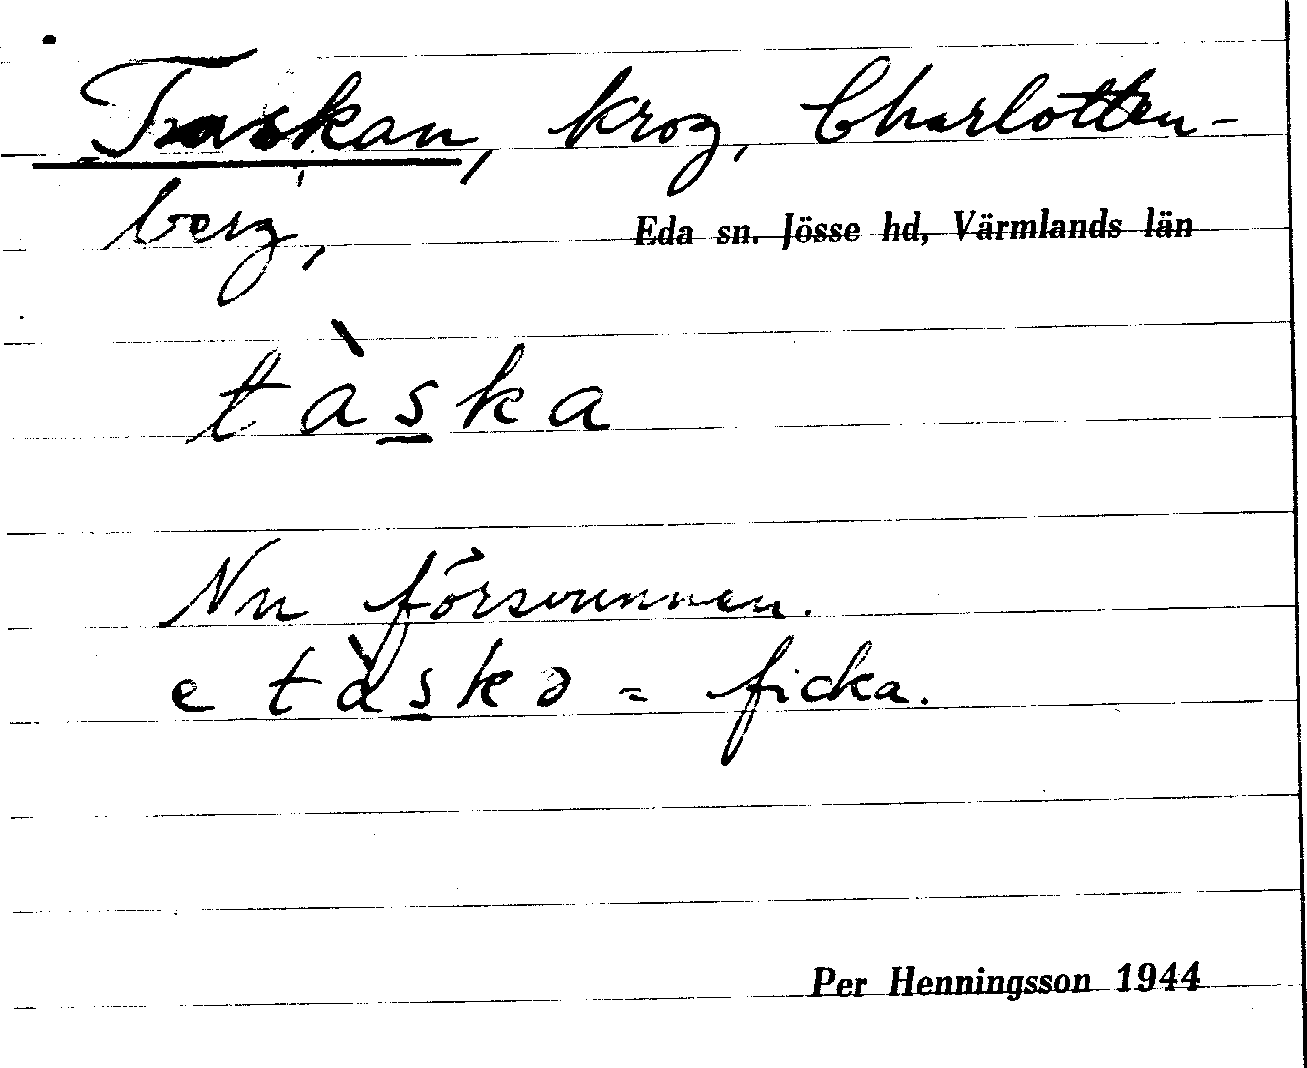 Taskan, krog, Charlotten-
berg,
Eda sn. Jösse hd, Värmlands län
tàs̲ka
Nu försvunnen.
e tàs̲kə = ficka.
Per Henningsson 1944